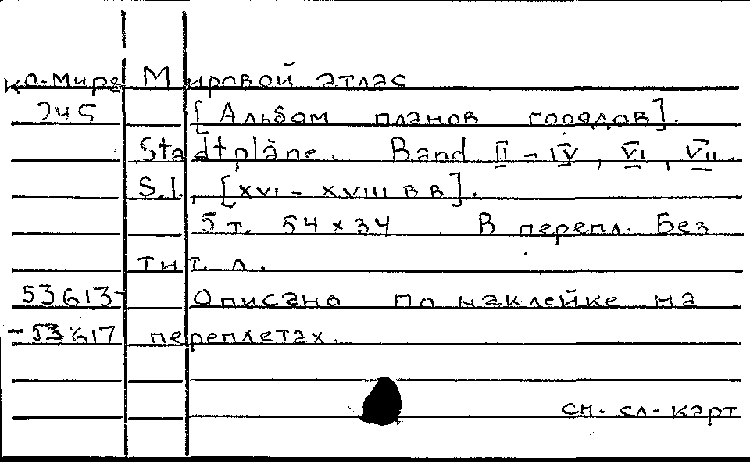 ко-мира Мировой атлас
245 [Альбом планов городов].
Stadtpläne. Band II - IV, VI, VII
S.l., [XVI - XVIII в в].
5 т. 54 × 34 В перепл. Без
тит. л.
53613- Описано по наклейке на
-53617 переплетах.
см. сл. карт